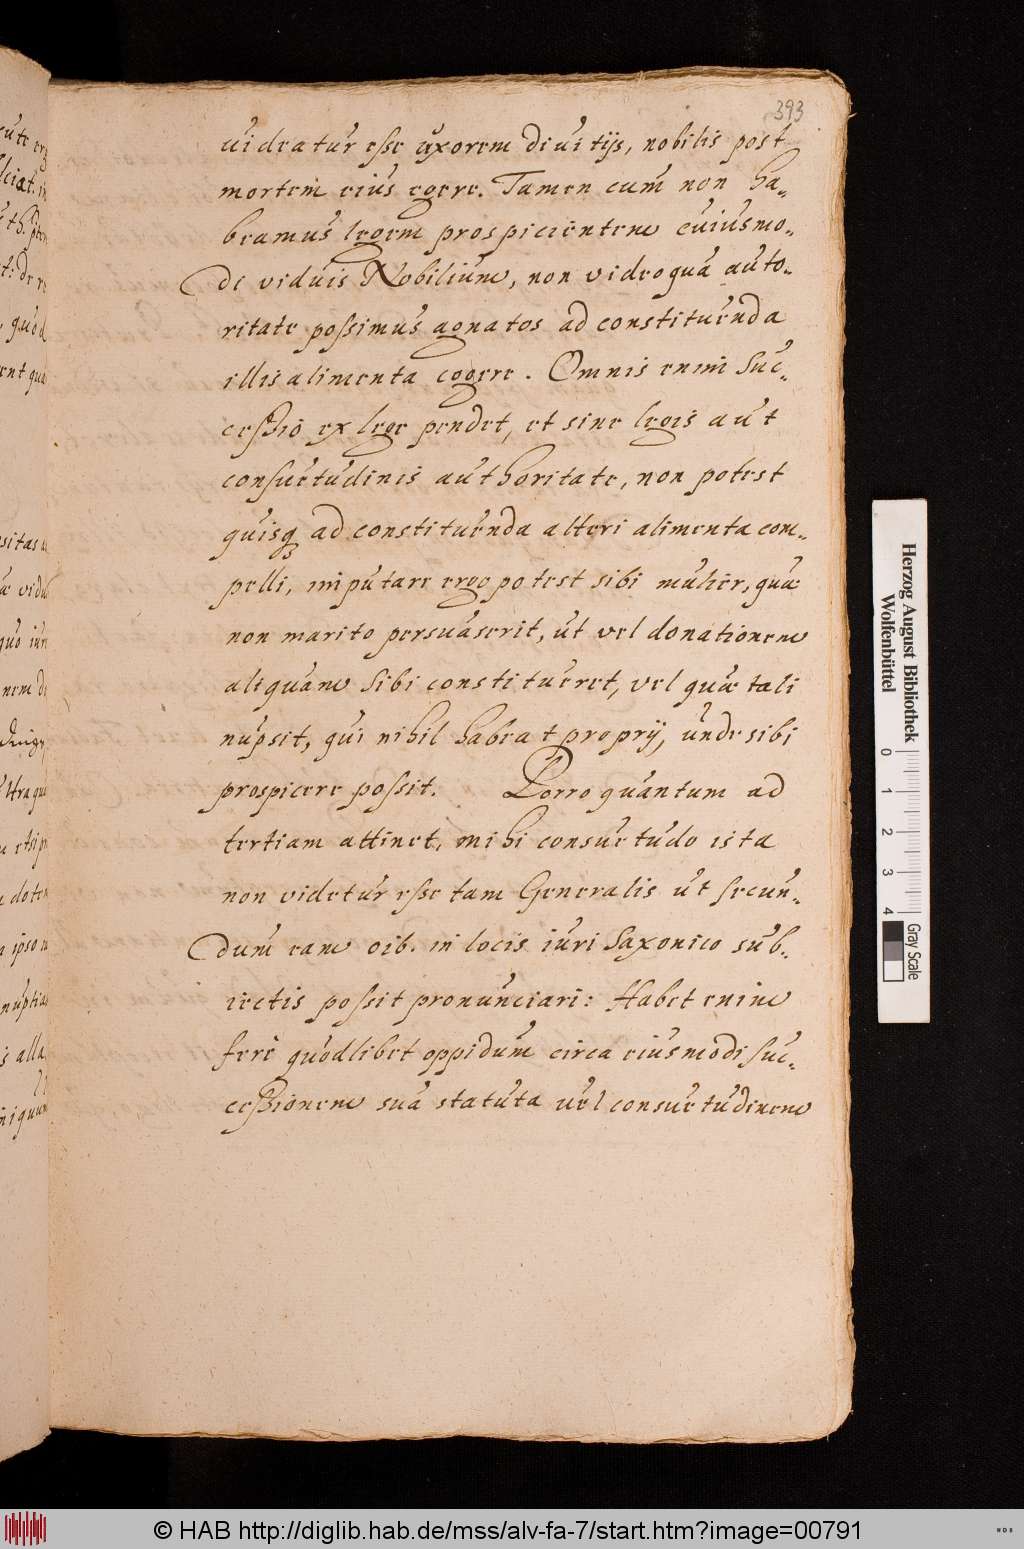 393
uideatur esse uxorem deuitijs, nobilis post
mortem eius egere. Tamen cum non ha-
beamus legem prospicientem cuiusmo-
di viduis Nobilium, non video qua auto-
ritate possimus agnatos ad constituenda
illis alimenta cogere. Omnis enim Suc-
cessio ex lege pendet, et sine legis aut
consuetudinis authoritate, non potest
quisq ad constituenda alteri alimenta com-
pelli, imputare ergo potest sibi mulier, quæ
non marito persuaserit, ut vel donationem
aliquam sibi constitueret, vel quæ tali
nupsit, qui nihil habeat proprij, unde sibi
prospicere possit. Porro quantum ad
tertiam attinet, mihi consuetudo ista
non videtur esse tam Generalis ut secun-
dum eam oib. in locis iuri Saxonico sub-
iectis possit pronunciari: Habet enim
fere quodlibet oppidum circa eiusmodi suc-
cessionem sua statuta uel consuetudinem
Herzog August Bibliothek
Wolfenbüttel
0 1 2 3 4
Gray Scale
© HAB http://diglib.hab.de/mss/alv-fa-7/start.htm?image=00791